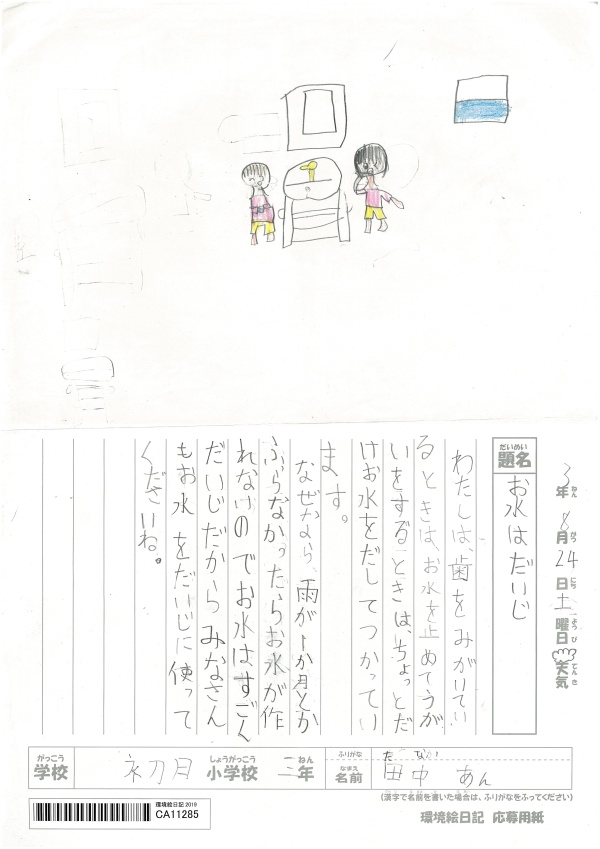 3年 8月 24日 土曜日 天気
ねん がつ にち ようび てんき
だいめい
題名 お水はだいじ
わたしは、歯をみがいてい
るときは、お水を止めてうが
いをするときは、ちょっとだ
けお水をだしてつかってい
ます。
なぜなら、雨が1か月とか
ふらなかったらお水が作
れないのでお水はすごく
だいじだからみなさん
もお水をだいじに使って
くださいね。
がっこう しょうがっこう ねん ふりがな
学校 初月 小学校 三年
なまえ
名前 田中 あん
(漢字で名前を書いた場合は、ふりがなをふってください)
環境絵日記 2019
CA11285
環境絵日記 応募用紙